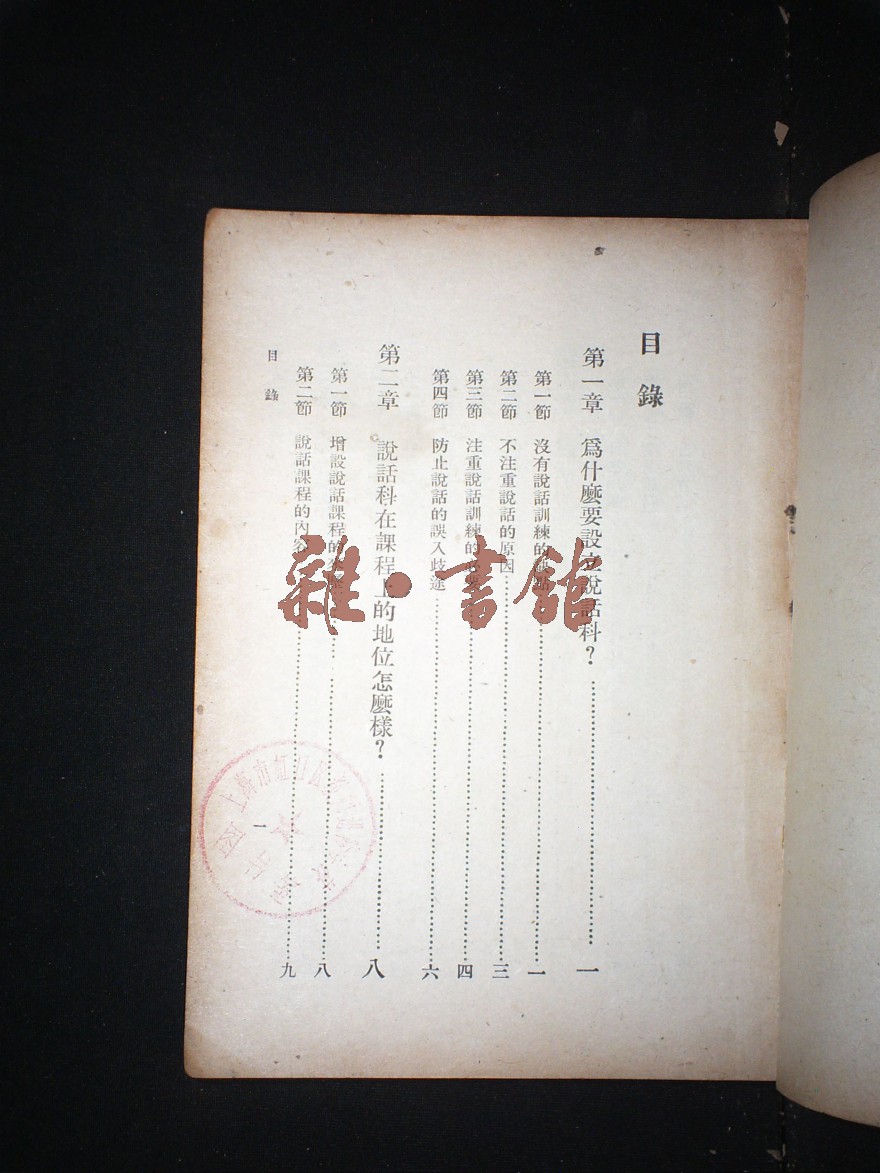 目錄
第一章 爲什麼要設立說話科？……一
第一節 沒有說話訓練的缺點……一
第二節 不注重說話的原因……三
第三節 注重說話訓練的……四
第四節 防止說話的誤入歧途……六
第二章 說話科在課程上的地位怎麼樣？……八
第一節 增設說話課程的……八
第二節 說話課程的內容……九
目錄
一
雜·書館
上海市虹口區
圖書